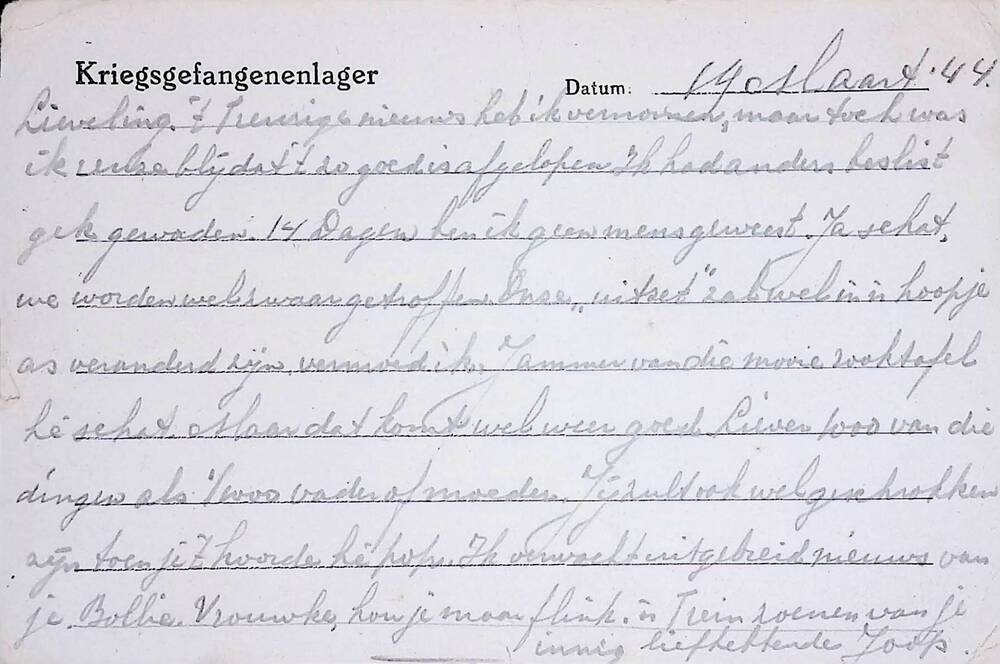 Kriegsgefangenenlager
Datum: 14 Maart '44.
Lieveling. 't Treurige nieuws heb ik vernomen, maar toch was
ik reuze blij dat 't zo goed is afgelopen. Ik had anders beslist
gek geworden. 14 Dagen ben ik geen mens geweest. Ja schat,
we worden wel zwaar getroffen. Onze „uitzet" zal wel in 'n hoopje
as veranderd zijn, vermoed ik. Jammer van die mooie rooktafel
hè schat. Maar dat komt wel weer goed. Liever 1000 van die
dingen als 1/1000 vader of moeder. Jij zult ook wel geschrokken
zijn toen je 't hoorde hè pop. Ik verwacht uitgebreid nieuws van
je. Bollie. Vrouwke, hou je maar flink. 'n Trein zoenen van je
innig liefhebbende Joop.